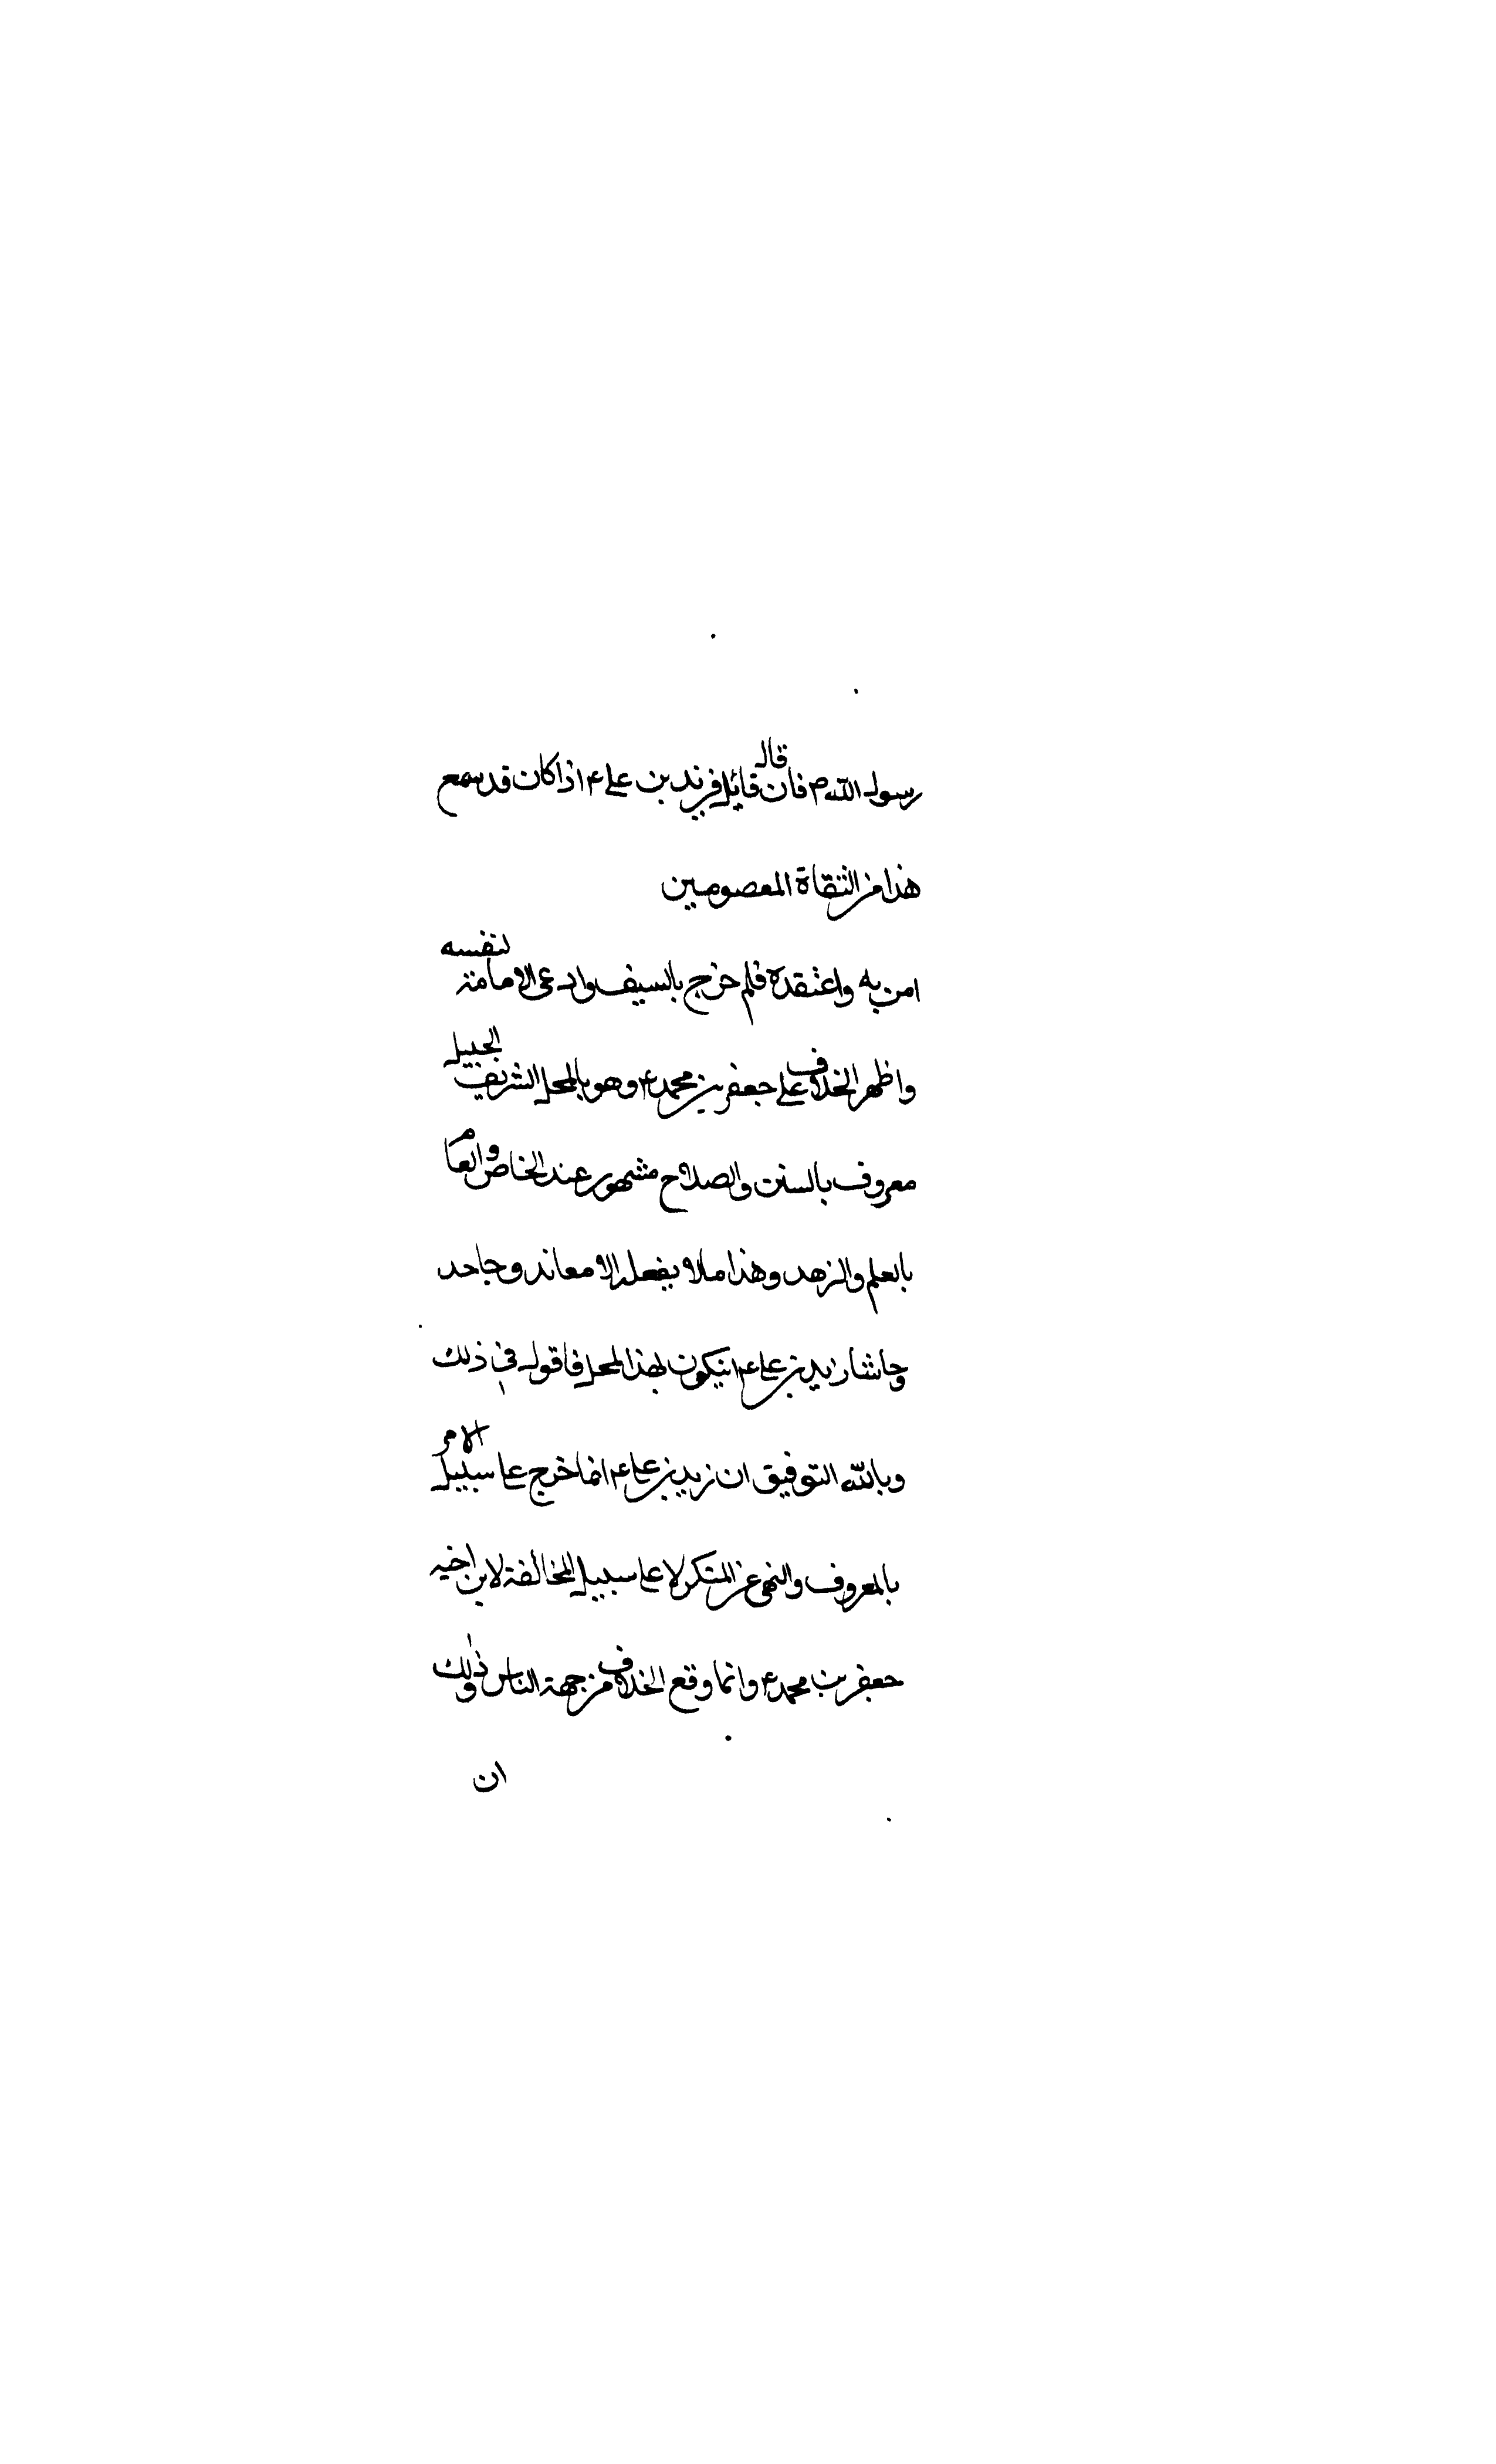 رسول الله ص فان قال قائل فزيد بن علي ع اذا كان قد سمع
هذا من الثقاة المعصومين
امن به واعتقده فلم خرج بالسيف وادعى الامامة لنفسه
واظهر الخلاف على جعفر بن محمد ع وهو بالمحل الشريف الجليل
معروف بالستر والصلاح مشهور عند الخاص والعام
بالعلم والزهد وهذا ما لا يفعله الا معاند وجاحد
وحاشا زيد بن علي ع ان يكون بهذا المحل فاقول في ذلك
وبالله التوفيق ان زيد بن علي ع انما خرج على سبيل الامر
بالمعروف والنهي عن المنكر لا على سبيل المخالفة لابن اخيه
جعفر بن محمد ع وانما وقع الخلاف من جهة الناس وذلك
ان